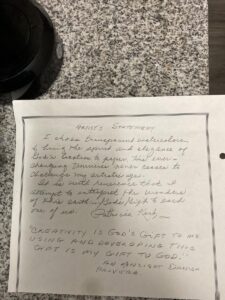 ARTIST'S STATEMENT
I chose transparent watercolors
to bring the spirit and elegance of
God's creation to paper. His ever-
changing
never ceases to
challenge my artistic eye.
It is with reverence that I
attempt to interpret the wonders
of this earth - God's gift to each
one of us. Patricia
"CREATIVITY IS GOD'S GIFT TO ME
USING AND DEVELOPING THIS
GIFT IS MY GIFT TO GOD."
AN ANCIENT DANISH
PROVERB